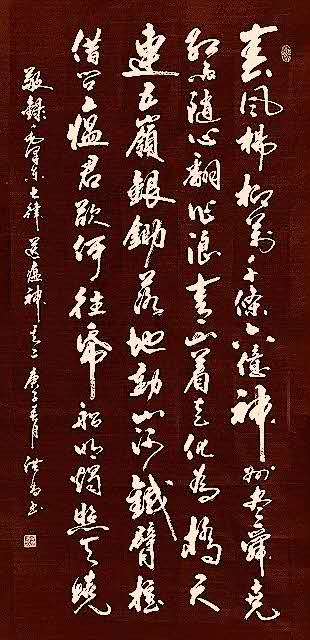 春風楊柳萬千條六億神州盡舜堯
紅雨隨心翻作浪青山着意化為橋天
連五嶺銀鋤落地動山河鐵臂摇
借問瘟君欲何往紙船明燭照天燒
敬錄毛澤東七律送瘟神其二 庚子春月 洪 書